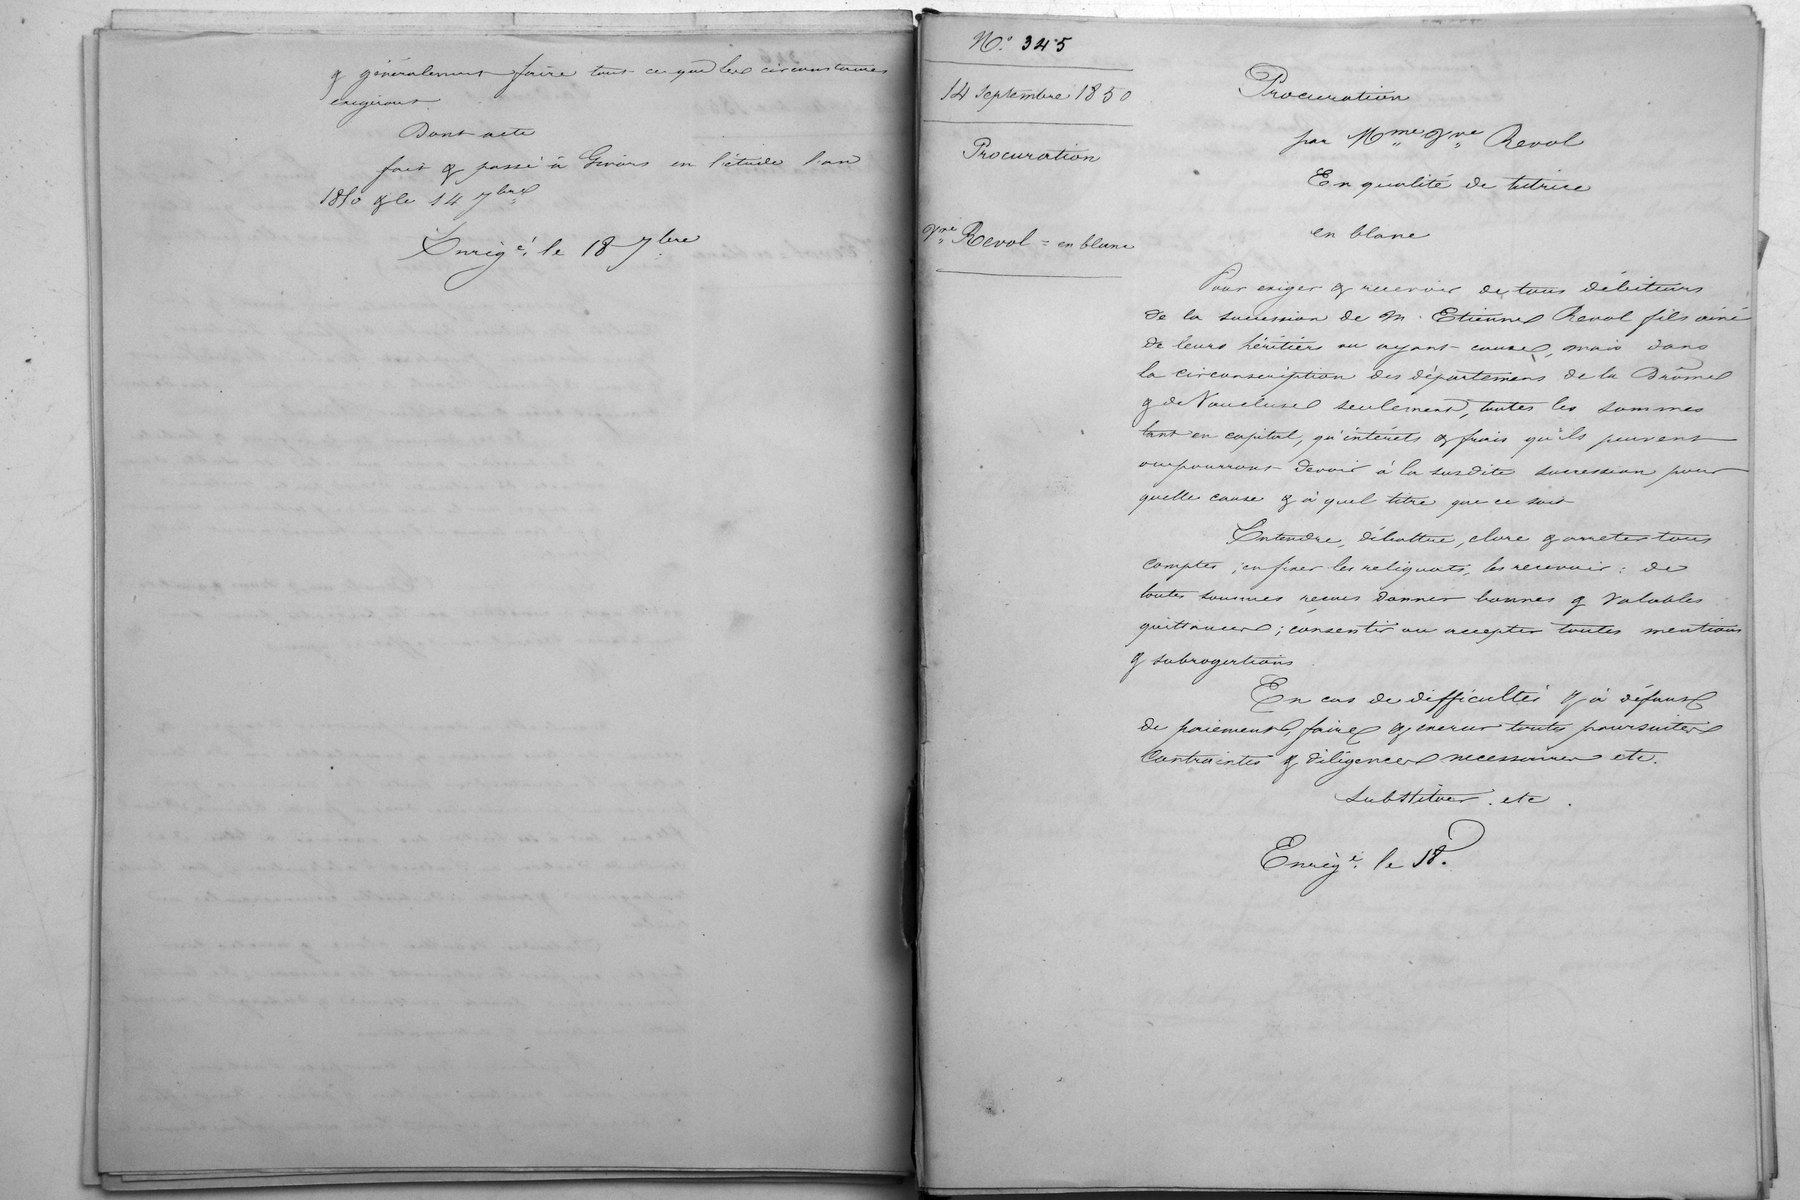 & généralement faire tout ce que les circonstances
exigeront
Dont acte
fait & passé à Givors en l'étude l'an
1850 & le 14 7bre
Enregé. le 18 7bre
No. 345
14 Septembre 1850
Procuration
Vve Revol = en blanc
Procuration
par Mme Vve Revol
En qualité de tutrice
en blanc
Pour exiger & recevoir de tous débiteurs
de la succession de M. Etienne Revol fils ainé
de leurs héritiers ou ayant-cause, mais dans
la circonscription des départemens de la Drôme
& de Vaucluse seulement, toutes les sommes
tant en capital, qu'intérêts & frais qu'ils peuvent
ou pourront devoir à la susdite succession pour
quelle cause & à quel titre que ce soit
Entendre, débattre, clore & arreter tous
comptes ; en fixer les reliquats, les recevoir : de
toutes sommes recues donner bonnes & valables
quittances ; consentir ou accepter toutes mentions
& subrogations
En cas de difficultés & à défaut
de paiement, faire & exercer toutes poursuites
Contraintes & diligences necessaires etc.
Substituer. etc.
Enregé. le 18.